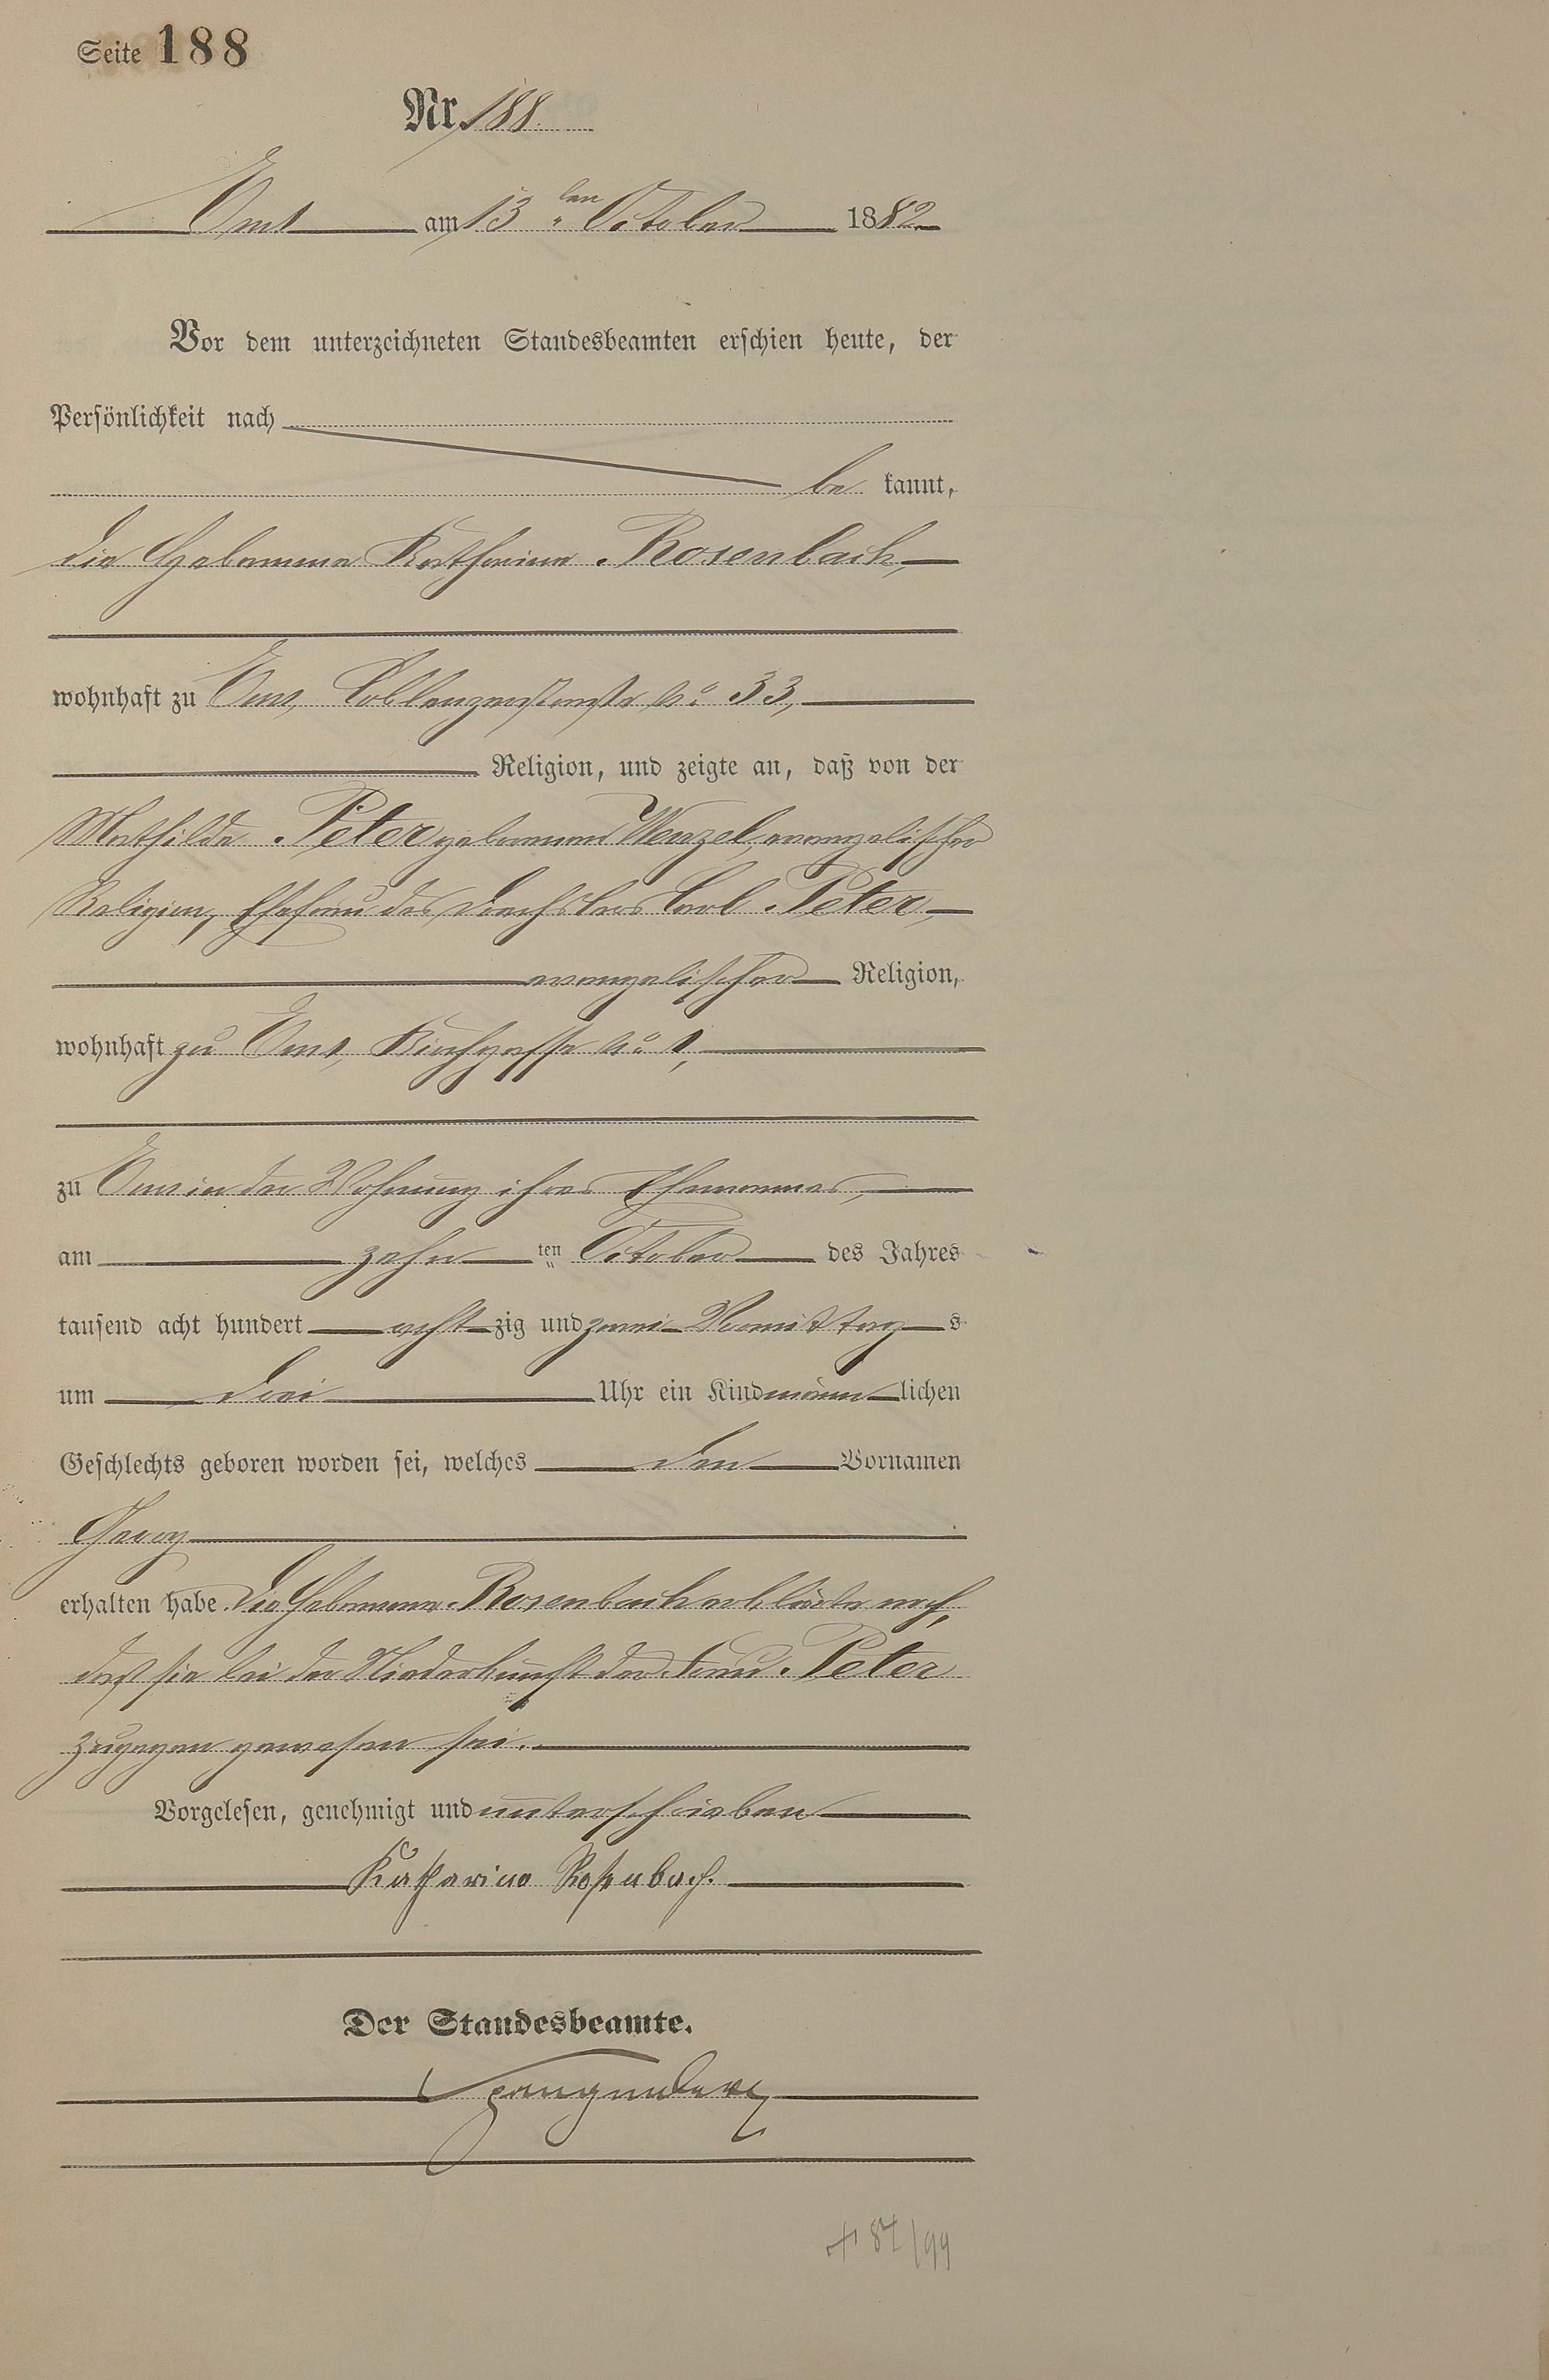 Seite 188
Nr. 188.
Ems am 13ten October 1882
Vor dem unterzeichneten Standesbeamten erschien heute, der
Persönlichkeit nach
be kannt,
die Hebamme Katharina Rosenbach,
wohnhaft zu Ems, Coblenzerstraße No 33,
Religion, und zeigte an, daß von der
Mathilde Peter geborenen Wenzel, evangelischer
Religion, Ehefrau des Drechslers Carl Peter,
evangelischer Religion,
wohnhaft zu Ems, Kirchgasse No 1,
zu Ems in der Wohnung ihres Ehemannes,
am zehn ten October des Jahres
tausend acht hundert acht zig und zwei Vormittag s
um drei Uhr ein Kind männ lichen
Geschlechts geboren worden sei, welches den Vornamen
Georg
erhalten habe. Die Hebamme Rosenbach erklärte noch,
daß sie bei der Niederkunft der Frau Peter
zugegen gewesen sei.
Vorgelesen, genehmigt und unterschrieben
Katharina Rosenbach.
Der Standesbeamte.
Spangenberg